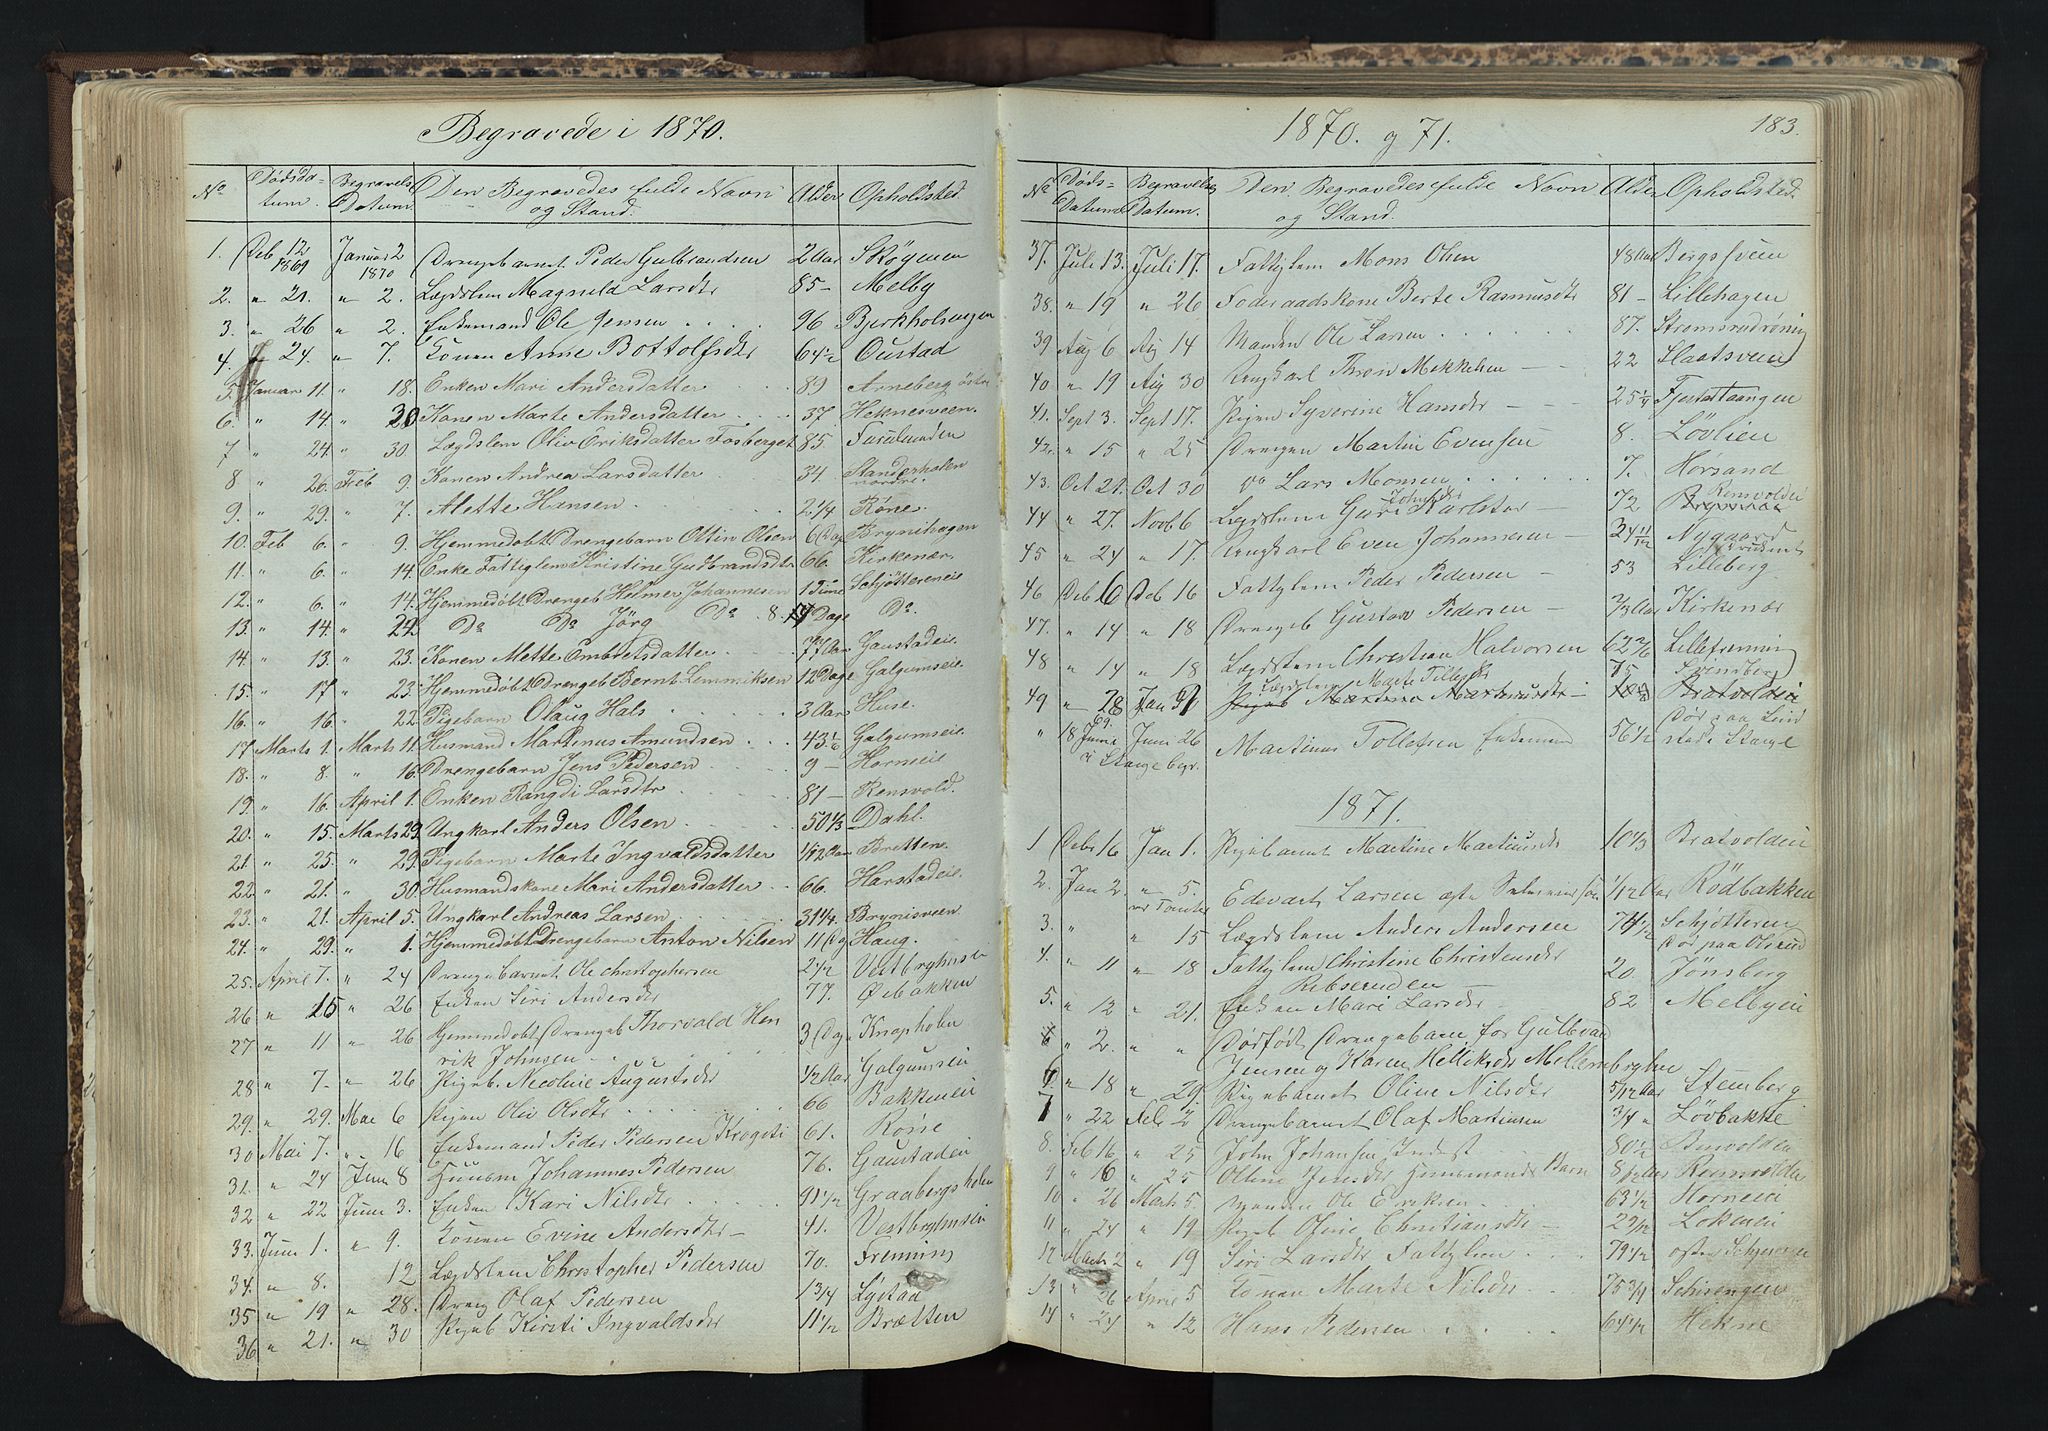 Begravede i 1870.
No Dødsdatum. Begravels Datum. Den Begravedes fulde Navn og Stand. Alder Opholdsted.
1. Deb 12 1869 Januar 2 1870 Drengebarnet Peder Gulbrandsen 2 Aar Skøgmen
2. " 21. " 2. Lægdslem Magnild Larsdtr 85 - Melby
3. " 26 " 2. Enkemand Ole Jenssen 96 Bjerkholsengen
4. " 24. " 7. Konen Anne Bottolfsdtr 64 1/2 Oustad
5. Januar 11. " 18. Enken Mari Andersdatter 89 Arneberg østre
6. " 14 " 30 Konen Marte Andersdatter 37. Heknesveen.
7 " 24 " 30 Lægdslem Oliv Eriksdatter Fosberget 85 Furulunden
8 " 26. Feb 9. Konen Andrea Larsdatter 34 Standerholen nordre.
9. " 29. " 7. Alette Hansen 2 1/4 Røne.
10. Feb 6. " 9. Hjemmedøbt Drengebarn Ottin Olsen 6 Dag Brynihagen
11. " 6. " 14. Enke Fattiglem Kristine Gudbrandsdtr 66. Kirkenær.
12. " 6. " 14. Hjemmedøbt Drengeb Helmer Johannesen 1 Time Schjøttereneie
13. " 14. " 24. Do Do Jörg Do 8. Dage Do.
14 " 13. " 23. Konen Mette Ombretsdatter 77 Aar Gaustadeie.
15. " 17. " 23. Hjemmedøbt Drengeb Bernt Lemmiksen 12 Dage Galgumseie
16. " 16. " 22. Pigebarn Olaug Hals 3 Aar Huse.
17 Marts 1. Marts 11. Husmand Martenus Amundsen 43 1/2 Galgumseie.
18. " 8. " 16. Drengebarn Jens Pedersen 9 - Horneie
19 " 16. April 1. Enken Rangdi Larsdtr 81 - Rensvold.
20. " 15. Marts 29. Ungkarl Anders Olsen 50 1/3 Dahl.
21. " 25. " 29. Pigebarn Marte Ingvaldsdatter 1/12 Aar Bretten.
22. " 21. " 30. Husmandskone Mari Andersdatter 66. Harstadeie.
23. " 21. April 5. Ungkarl Andreas Larsen 31 1/4. Brynisveen
24. " 29. " 1. Hjemmedøbt Drengebarn Anton Nilsen 11 Dg Haug.
25. April 7. " 24 Drengebarnet Ole Christophersen 2 1/2 Vestbryhnsei
26 " 15 " 26 Enken Siri Andersdtr 77. Øvbakken
27 " 11 " 26 Hjemmedøbt Drengeb Thorvald Hen
rik Johnsen 3 Dage Knapholen
28 " 7. " 26 Pigeb. Nicoline Augustsdtr 1/2 Aar Galgumseie
29. " 29. Mai 6 Pigen Oliv Olsdtr 66 Bakkeneie
30 Mai 7. " 16 Enkemand Peder Pedersen Krogsti 61. Røne
31. " 24 Juni 8 Huusm Johannes Pedersen 76. Gaustadeie
32 " 22 Juni 3. Enken Kari Nilsdtr 91 1/2 Graabergsholen
33. Juni 1. " 9. Konen Evine Andersdtr - 41. Vestbryhnseie
34. " 8. 12 Lægdslem Christopher Pedersen 70. Frenning
35 " 19 " 28. Dreng Olaf Pedersen 1 3/4 Lystad
36 " 21. " 30 Pigeb Kirsti Ingvaldsdtr 11 1/2 Brætten
1870. og 71. 183.
No Døds-Datum Begravelses Datum. Den Begravedes fulde Navn og Stand. Alder Opholdsted.
37. Juli 13. Juli 17. Fattiglem Mons Olsen 48 Aar Bergssveen
38. " 19 " 26 Foderaadskone Berte Rasmusdtr 81 - Lillehagen
39 Aug 6 Aug 14 Manden Ole Larsen 87. Stromsrudrøning
40 " 19 Aug 30 Ungkarl Thron Mekkelsen - 22 Slaatsveen
41. Sept 3. Sept 17. Pigen Syverine Hansdtr - 25 1/4 Fjerstattangen
42. " 15 " 25 Drengen Martin Evensen 8. Løvlien
43. Oct 21. Oct 30 do Lars Monsen 7. Horsand
44 " 27. Novb 6 Lægdslem Guri Johnsdtr Karlstad - 72 Rensvolden
45 " 24 " 17. Ungkarl Even Johannesen 34 11/12 Nygaard
46 Deb 6 Deb 16 Fattiglem Peder Pedersen - 53 Lilleberg
47. " 14 " 18 Drengeb Gustav Pedersen - 2/3 Aar Kirkenær
48 " 14 " 18 Lægdslem Christian Halvorsen 62 2/6 Lillefrenning
49 " 28 Jan 31 Lægdslem Marte Tillesdtr 75 Svinsberg
Pigeb Martine Martinusdtr - Bratvoldeie
" 18 Juni 69. Juni 26 Martinus Tollefsen Enkemand 56 1/2 Død paa Lind
i Stange begr. stad i Stange
1871.
1 Debr 16 Jan 1. Pigebarnet Martine Martinusdtr 10 1/3 Bratvoldeie
2. Jan 2. " 5. Edevart Larsen 1/12 Aar Rødbakken
3. " " 15 Lægdslem Anders Andersen 74 1/2 Schjøtteren
Død paa Olsrud
4. " 11 " 18 Fattiglem Christine Christensdtr
Ribseruden - 20. Jønsberg
5. " 12 " 21. Enken Mari Larsdtr - 82 Melbyeie
" 2. " " Dødfødt Drengebarn for Gulbrand
Jensen og Karen Helliksdtr Mellembryhn
6 " 18 " 29. Pigebarnet Oline Nilsdtr 5/12 Aar Stumberg
7 " 22 Feb 2 Drengebarnet Olaf Martinsen 3/4 " Løvbakke
8. Feb 16 " 25 John Johansen Inderst 80 1/2 Rensvolden
9 " 16 " 25 Oline Jensdtr Huusmands Barn 8/12 Aar Rensvolden
10 " 26 Marts 5. Manden Ole Eriksen 63 1/2 Horneie
11 " 24 " 19 Pigeb Oline Christiansdtr - 2 9/12 Lokeneie
12 Marts 2 " 19 Siri Larsdtr Fattiglem 79 1/2
13 " 26 April 5 Konen Marte Nilsdtr 75 3/4 Schisengen
14 " 24 " 12 Hans Pedersen 64 1/2 Hekne